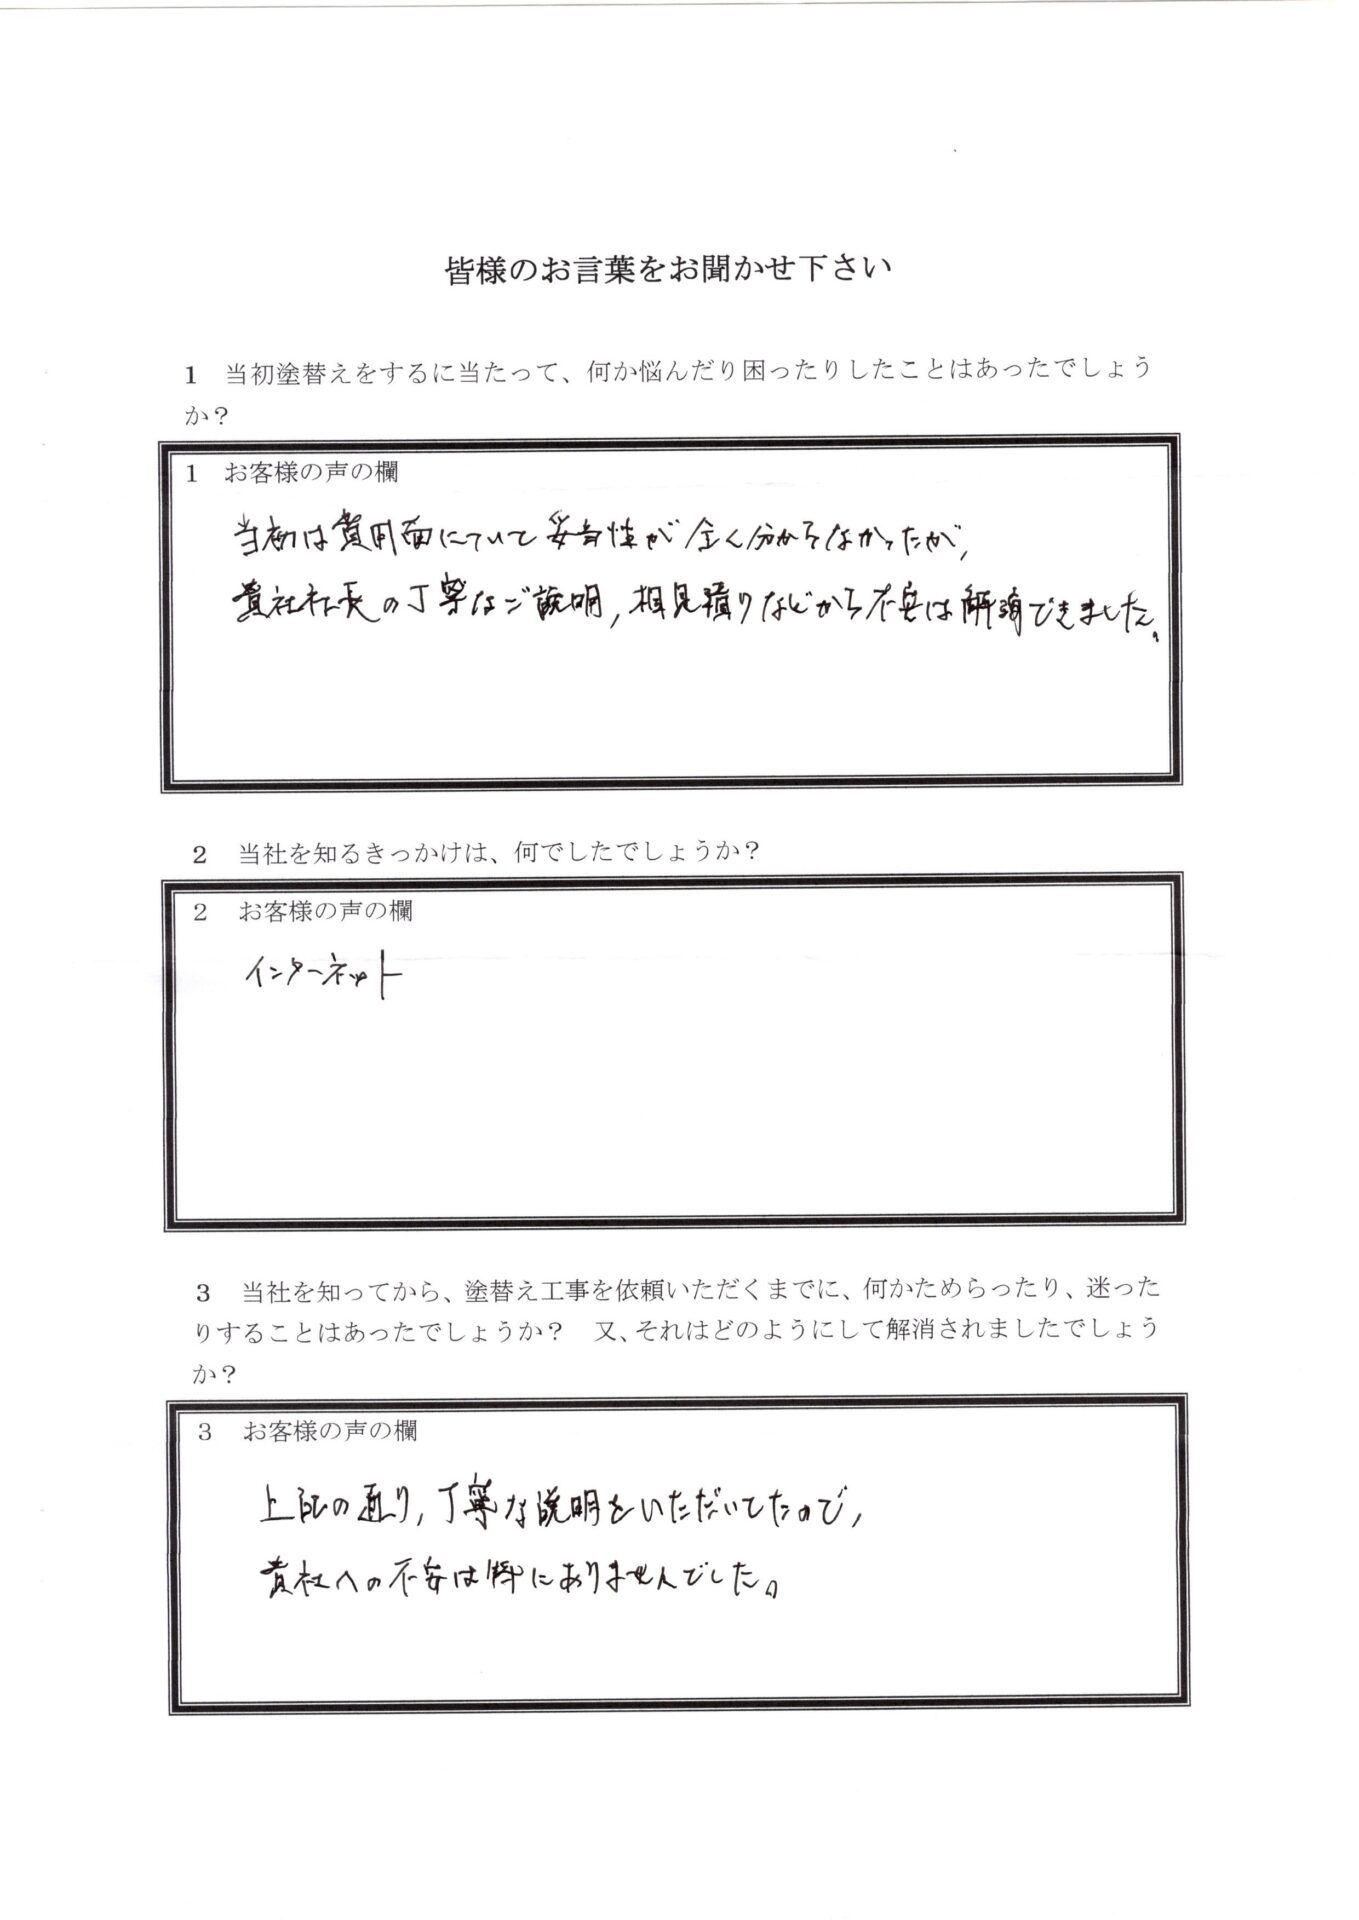 皆様のお言葉をお聞かせ下さい
1　当初塗替えをするに当たって、何か悩んだり困ったりしたことはあったでしょう
か？
1　お客様の声の欄
当初は費用面について妥当性が全く分からなかったが,
貴社社長の丁寧なご説明,相見積りなどから不安は解消できました。
2　当社を知るきっかけは、何でしたでしょうか？
2　お客様の声の欄
インターネット
3　当社を知ってから、塗替え工事を依頼いただくまでに、何かためらったり、迷った
りすることはあったでしょうか？　又、それはどのようにして解消されましたでしょう
か？
3　お客様の声の欄
上記の通り,丁寧な説明をいただいてたので,
貴社への不安は特にありませんでした。